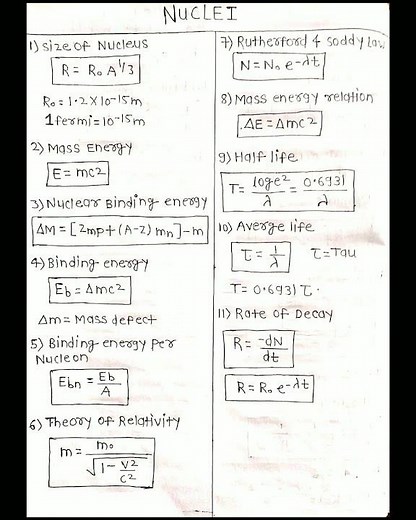 NUCLEI
1) Size of Nucleus
R = R₀ A^1/3
R₀ = 1·2 X 10^-15 m
1 fermi = 10^-15 m
2) Mass Energy
E = mc²
3) Nuclear Binding energy
ΔM = [Zmp + (A-Z) mn] - m
4) Binding energy
Eb = Δmc²
Δm = Mass defect
5) Binding energy per
Nucleon
Ebn = Eb/A
6) Theory of Relativity
m = m₀/√(1 - v²/c²)
7) Rutherford & Soddy Law
N = N₀ e^-λt
8) Mass energy relation
ΔE = Δmc²
9) Half life
T = loge2/λ = 0·6931/λ
10) Averge life
τ = 1/λ τ = Tau
T = 0·6931 τ.
11) Rate of Decay
R = -dN/dt
R = R₀ e^-λt